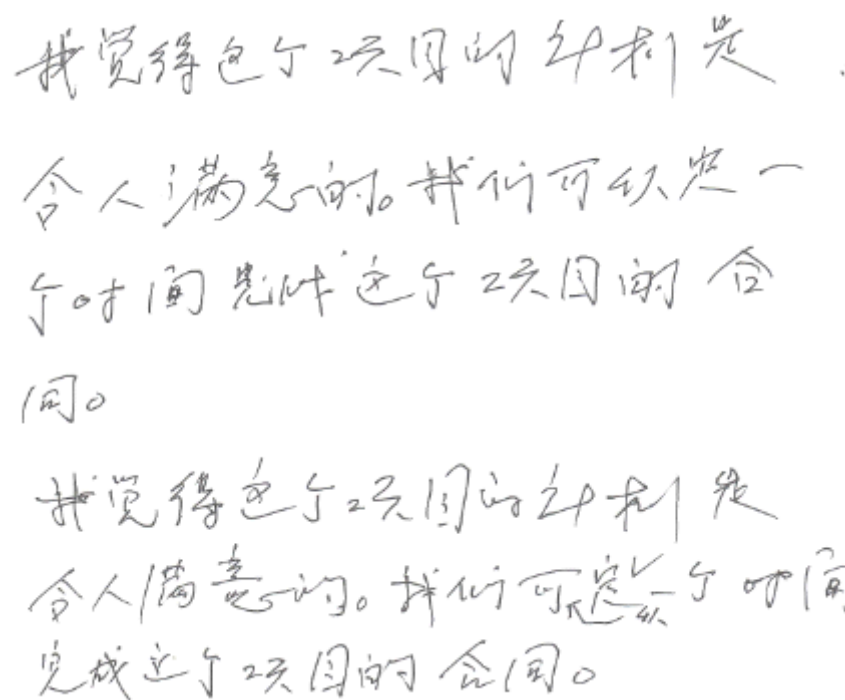 我觉得这个项目的计划是
令人满意的。我们可以定一
个时间完成这个项目的合
同。
我觉得这个项目的计划是
令人满意的。我们可以定一个时间
完成这个项目的合同。